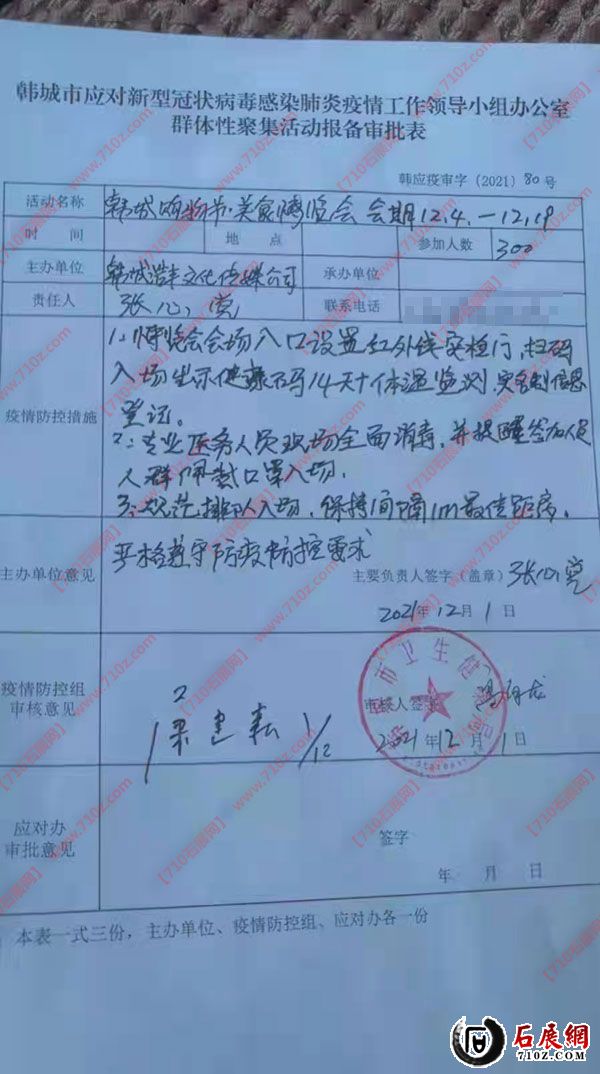 韩城市应对新型冠状病毒感染肺炎疫情工作领导小组办公室
群体性聚集活动报备审批表
韩应疫审字〔2021〕80号
活动名称 韩城购物节·美食博览会 会期12.4.—12.19
时间 地点 参加人数 300
主办单位 韩城浩丰文化传媒公司 承办单位
责任人 张心 联系电话
疫情防控措施
1、博览会会场入口设置红外线安检门,扫码
入场出示健康码14天+体温监测,实名制信息
登记。
2、专业医务人员现场全面消毒,并提醒参加人员
人群佩戴口罩入场.
3、规范排队入场,保持间隔1m最佳距离。
主办单位意见
严格遵守防疫防控要求
主要负责人签字(盖章) 张心
2021年12月1日
疫情防控组
审核意见
梁建 1/12
审核人签字
2021年12月1日
市卫生健
应对办
审批意见
签字
年 月 日
本表一式三份,主办单位、疫情防控组、应对办各一份
【710石展网】www.710z.com
石展網
710Z.COM